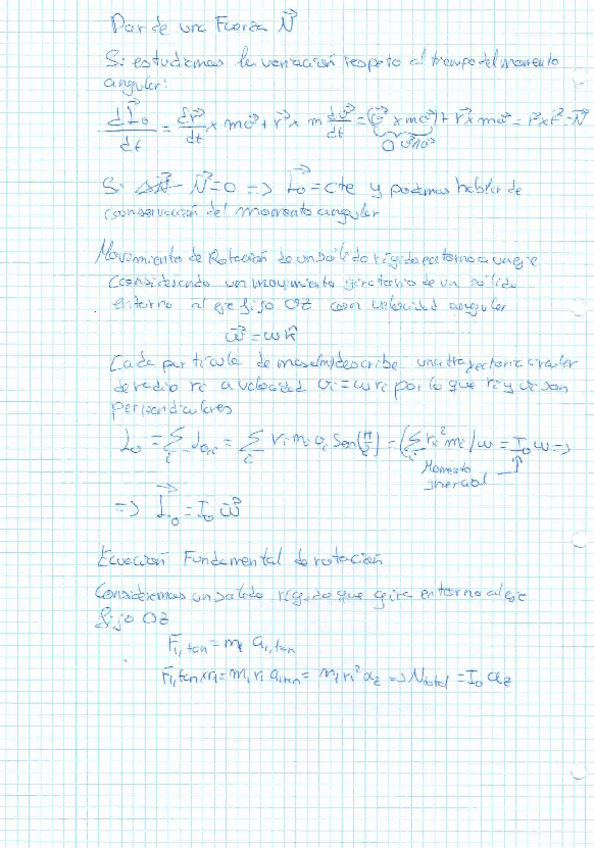 Par de una Fuerza N⃗
Si estudiamos la variación respecto al tiempo del momento
angular:
dL⃗o/dt = dr⃗/dt x mv⃗ + r⃗ x m dv⃗/dt = (v⃗ x mv⃗) + r⃗ x ma⃗ = r⃗ x F⃗ = N⃗
0 v⃗∧v⃗
Si N⃗=0 => L⃗o = cte y podemos hablar de
conservación del momento angular
Movimiento de Rotación de un sólido rígido en torno a un eje
Considerando un movimiento giratorio de un sólido
entorno al eje fijo OZ con velocidad angular
ω⃗ = ωk̂
Cada partícula de masa(mi) describe una trayectoria circular
de radio ri a velocidad vi = ωri por lo que ri y vi son
perpendiculares
Lo = Σi Loi = Σi ri mi vi Sen(π/2) = (Σi ri² mi)ω = Io ω =>
Momento
inercial
=> L⃗o = Io ω⃗
Ecuación Fundamental de rotación
Consideremos un sólido rígido que gira entorno al eje
fijo OZ
F1,tan = m1 a1,tan
F1,tan x r1 = m1 r1 a1tan = m1 r1² αz => Ntotal = Io αz